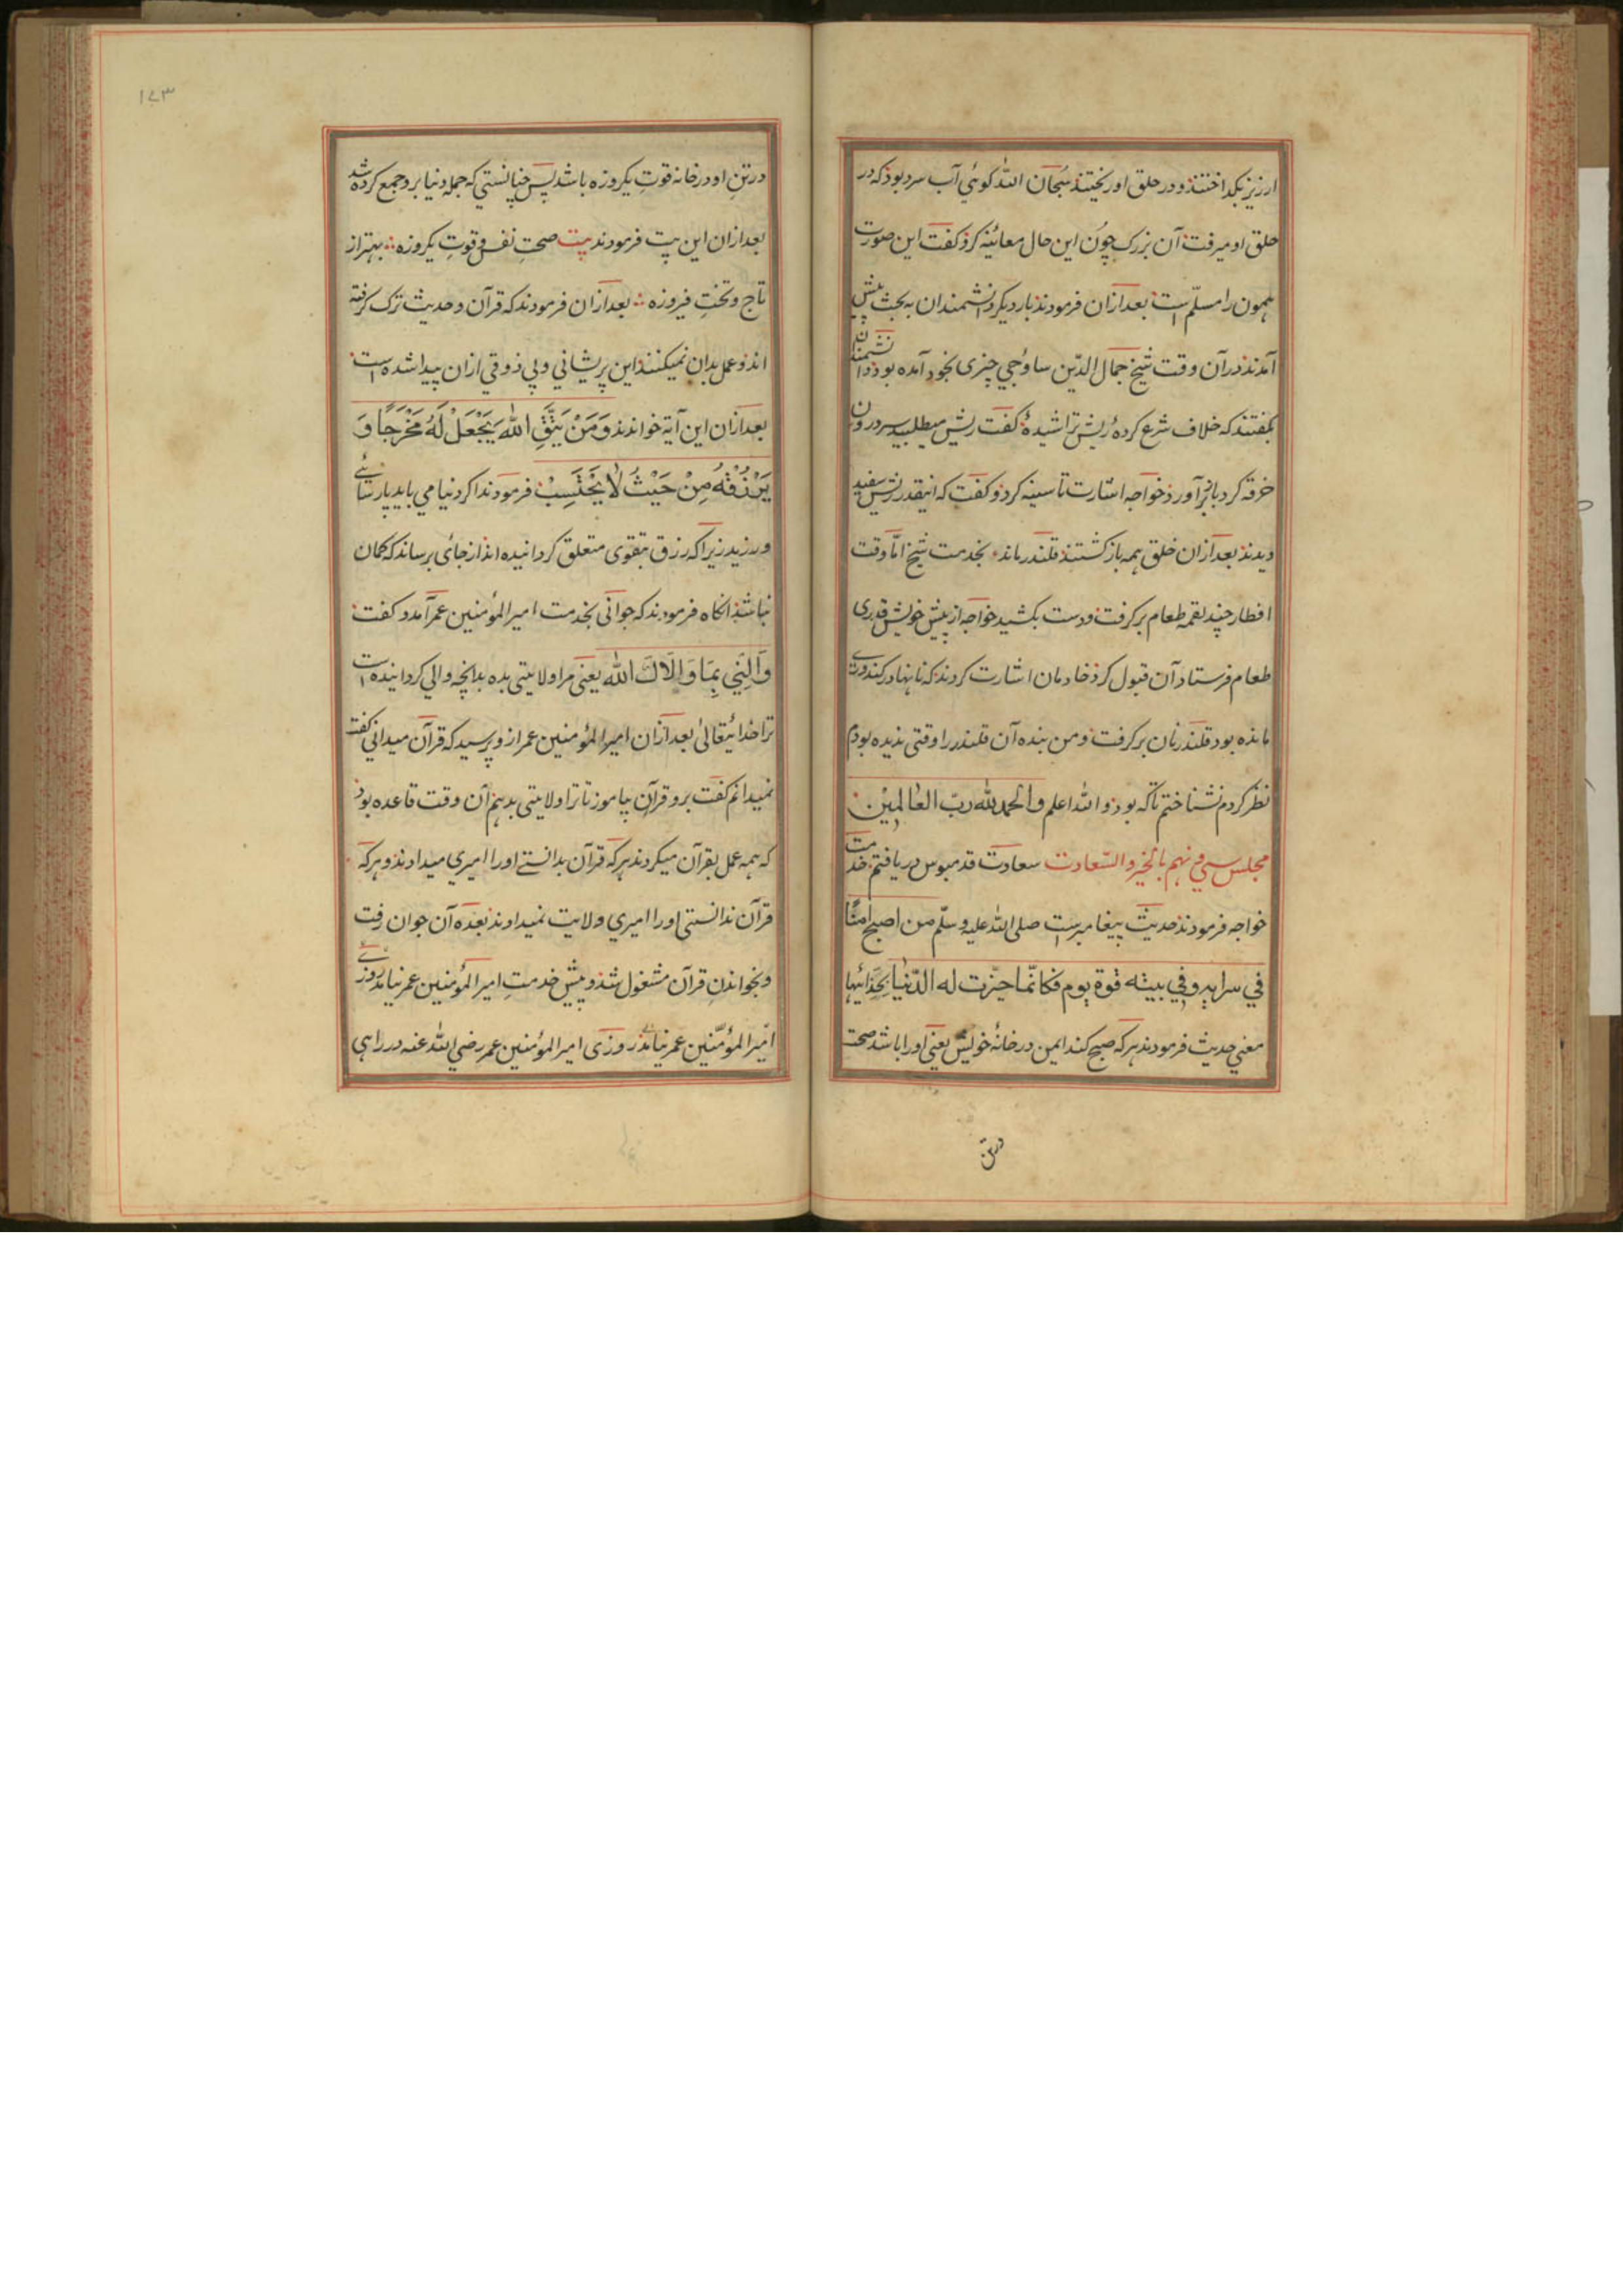 ارزیز بکداختند و در حلق او ریختند سبحان الله کوئی آب سرد بود که در
حلق او میرفت آن بزرک چون این حال معائنه کرد کفت این صورت
همون را مسلّم است بعد ازان فرمودند بار دیکر دانشمندان به بحث پیش
آمدند در آن وقت شیخ جمال الدّین ساوجي چیزی بخود آمده بود دانشمندان
بکفتند که خلاف شرع کردهٔ ریش تراشیدهٔ کفت ریش میطلبید سر درون
خرقه کرد باز برآورد خواجه اشارت تا سینه کرد و کفت که اینقدر ریش سفید
دیدند بعد ازان خلق همه باز کشتند قلندر ماند بخدمت شیخ امّا وقت
افطار چند لقمه طعام برکرفت و دست بکشید خواجه از پیش خویش قدری
طعام فرستاد آن قبول کرد خادمان اشارت کردند که نانها در کندوری
مانده بود قلندر نان برکرفت و من بنده آن قلندر را وقتی ندیده بودم
نظر کردم نشناختم تا که بود و الله اعلم والحمد لله ربّ العالمین
مجلس سي و نهم بالخیر و السّعادت سعادت قدمبوس دریافتم خدمت
خواجه فرمودند حدیث پیغامبرست صلی الله علیه و سلّم من اصبح امنًا
في سرابه وفي بیته قوة یوم فکانّما حیّزت له الدّنیا بحذائیها
معني حدیث فرمودند هر که صبح کند ایمن در خانهٔ خویش یعني او را باشد صحت
در تن
١٧٣
در تنِ او در خانه قوتِ یکروزه باشد پس چنانستي که جمله دنیا برو جمع کرده شد
بعد ازان این بیت فرمودند بیت صحتِ نفس و قوتِ یکروزه ؞ بهتر از
تاج و تختِ فیروزه ؞ بعد ازان فرمودند که قرآن و حدیث ترک کرفته
اند و عمل بدان نمیکنند این پریشاني و بي ذوقي ازان پیدا شده است
بعد ازان این آیة خواندند وَمَنْ یَتَّقِ اللّٰهَ یَجْعَلْ لَهُ مَخْرَجًا وَ
یَرْزُقْهُ مِنْ حَیْثُ لَا یَحْتَسِبْ فرمودند اکر دنیا مي باید پارسائے
ورزید زیرا که رزق بتقوی متعلق کردانیده اند از جائی برساند که کمان
نباشد آنکاه فرمودند که جوانی بخدمت امیر المؤمنین عمر آمد و کفت
وَالِنِي بِمَا وَالَاكَ اللّٰه یعنی مرا ولایتی بده بدانچه والي کردانیده است
ترا خدائیتعالیٰ بعد ازان امیر المؤمنین عمر ازو پرسید که قرآن میداني کفت
نمیدانم کفت برو قرآن بیاموز تا ترا ولایتی بدهم آن وقت قاعده بود
که همه عمل بقرآن میکردند هر که قرآن بدانستے او را امیري میدادند و هر که
قرآن ندانستی او را امیري و ولایت نمیدادند بعده آن جوان رفت
و بخواندنِ قرآن مشغول شد و پیش خدمتِ امیر المؤمنین عمر نیامد روزے
امیر المؤمنین عمر نیامد روزی امیر المؤمنین عمر رضي الله عنه در راهی